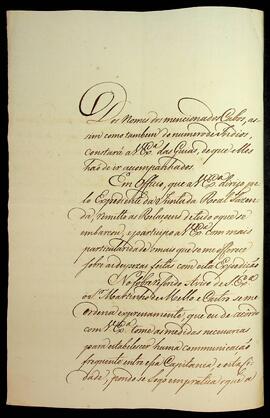 Dos Nomes dos mencionados Cabos, as-
sim como tambem do numero de Indios,
constará a V. Exa. das Guias, de que elles
hão de ir acompanhados.
Em Officio, que a V. Exa. dirijo pe-
lo Expediente da Junta da Real Fazen-
da, remetto as Relaçoens de tudo o que se
embarcou, e participo a V. Exa. com mais
particularidade o mais que se me offerece
sobre as despezas feitas com esta Expedição
No sobredito Avizo de S. Exa.
o Sr. Martinho de Mello e Castro se me
ordena expressamente, que de acordo
com V. Exa. tome as medidas necessarias
para estabelecer huma communicação
frequente entre essa Capitania, e esta Ci-
dade, pondo-se logo em pratica o que a